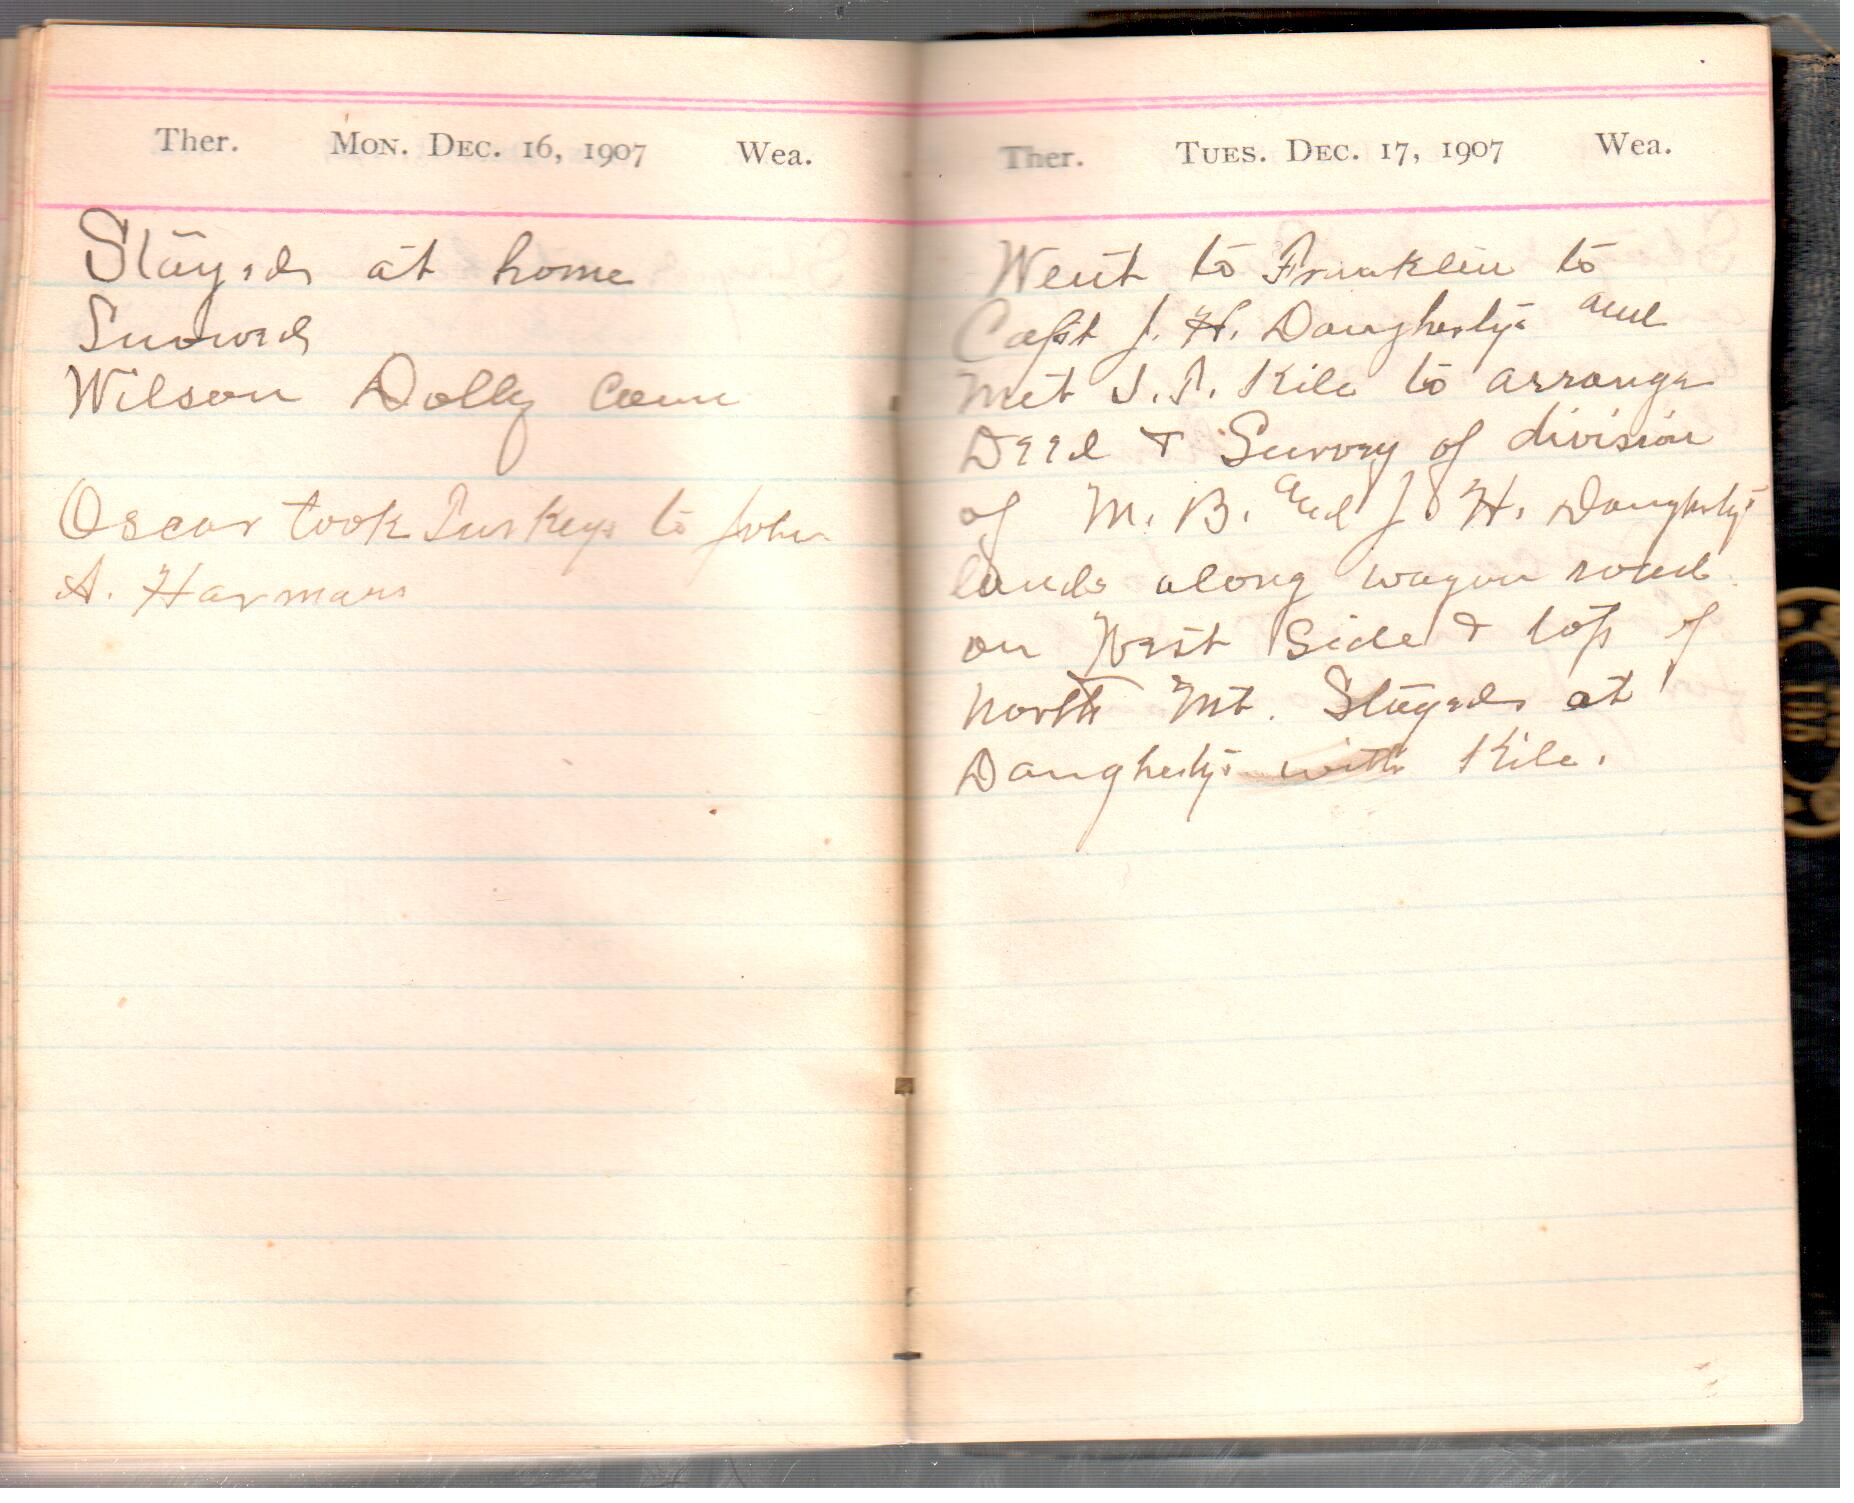 Ther. Mon. Dec. 16, 1907 Wea.
Stayed at home
Snowed
Wilson Dolly came
Oscar took Turkeys to John
A. Harmans
Ther. Tues. Dec. 17, 1907 Wea.
Went to Franklin to
Capt J. H. Daugherty's and
Met J. P. Kile to arrange
Deed & Survey of division
of M. B. and J H. Daugherty's
lands along wagon road
on West Side & top of
North Mt. Stayed at
Daugherty's with Kile.